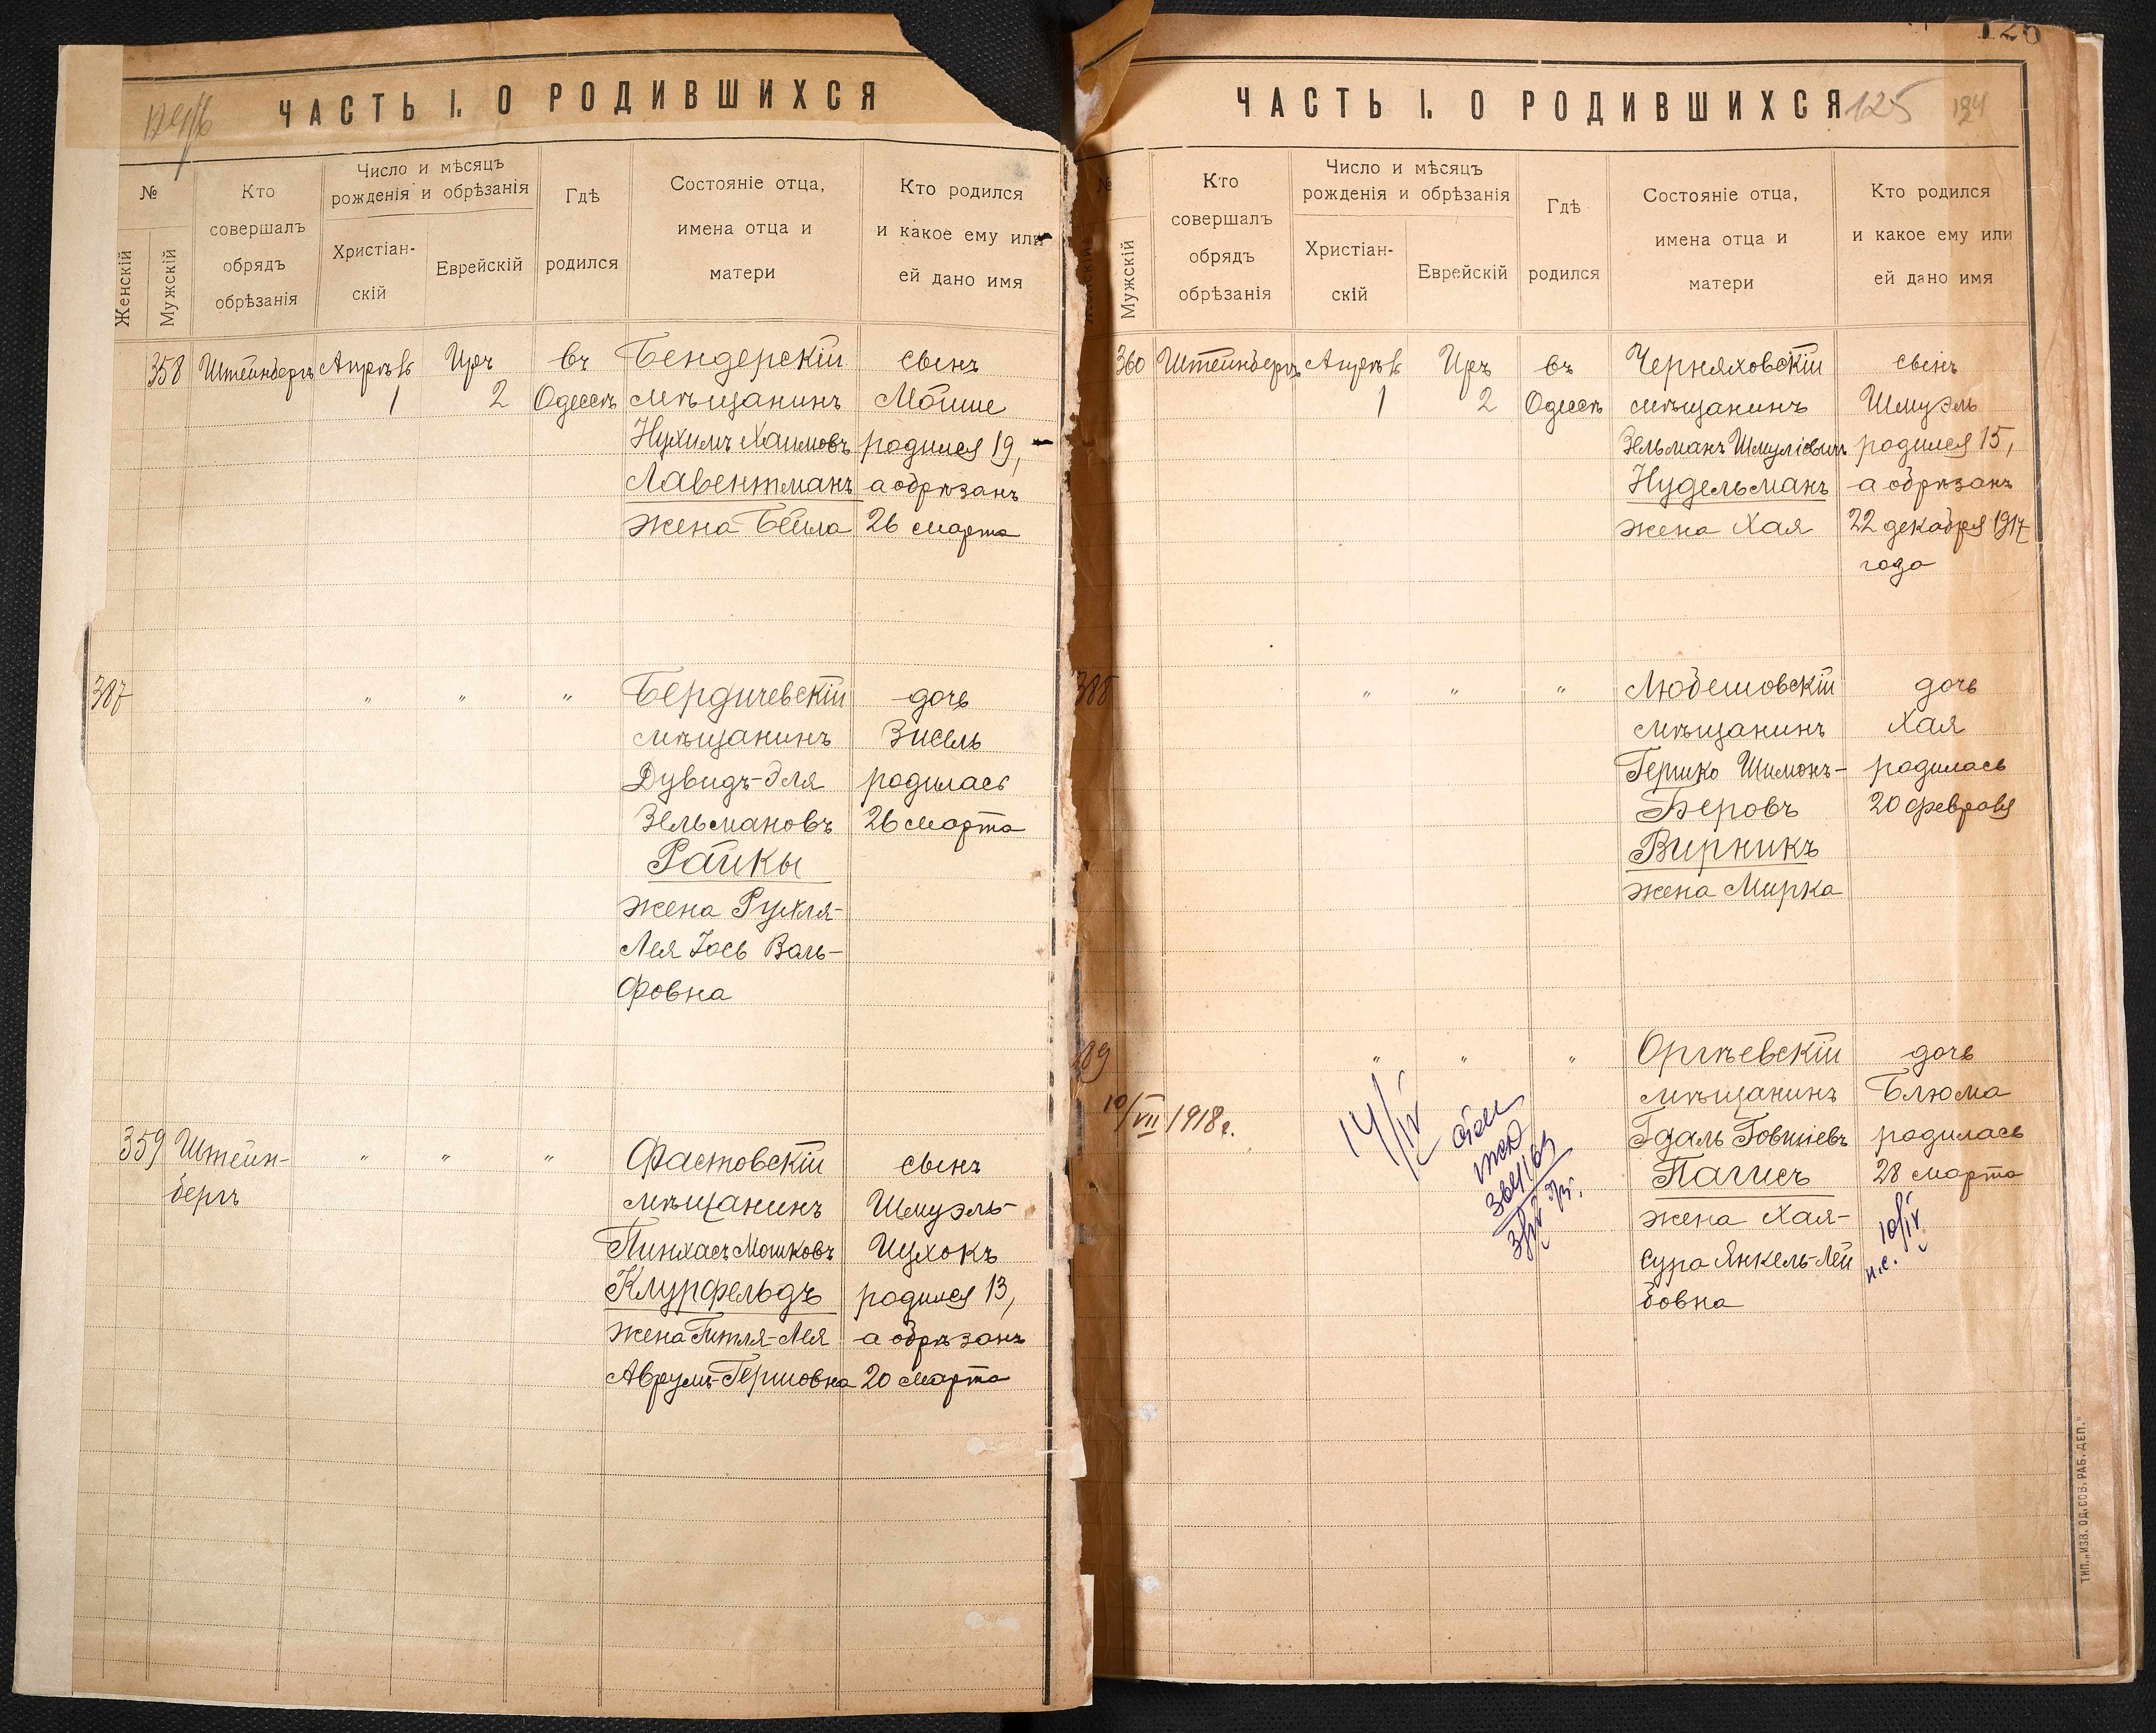 ЧАСТЬ I. О РОДИВШИХСЯ
№
Женскій
Мужскій
Кто
совершалъ
обрядъ
обрѣзанія
Число и мѣсяцъ
рожденія и обрѣзанія
Христіан-
скій
Еврейскій
Гдѣ
родился
Состояніе отца,
имена отца и
матери
Кто родился
и какое ему или
ей дано имя
358 Штейнбергъ Апрѣль Иръ въ Бендерскій сынъ
1 2 Одессѣ мѣщанинъ Мойше
Нухимъ Хаимовъ родился 19,
Лавентманъ а обрѣзанъ
жена Бейла 26 марта
387 " " " Бердичевскій дочь
мѣщанинъ Зисель
Дувидъ-Эля родилась
Зельмановъ 26 марта
Райкы
жена Рухля-
Лея Іось Воль-
фовна
359 Штейн- " " " Фастовскій сынъ
бергъ мѣщанинъ Шмуэль-
Пинхасъ Мошковъ Ицхокъ
Клурфельдъ родился 13,
жена Гитля-Лея а обрѣзанъ
Аврумъ-Гершовна 20 марта
125
ЧАСТЬ I. О РОДИВШИХСЯ
№
Мужскій
Кто
совершалъ
обрядъ
обрѣзанія
Число и мѣсяцъ
рожденія и обрѣзанія
Христіан-
скій
Еврейскій
Гдѣ
родился
Состояніе отца,
имена отца и
матери
Кто родился
и какое ему или
ей дано имя
360 Штейнбергъ Апрѣль Иръ въ Черняховскій сынъ
1 2 Одессѣ мѣщанинъ Шмуэль
Зельманъ Шмуліевичъ родился 15,
Нудельманъ а обрѣзанъ
жена Хая 22 декабря 1917
года
388 " " " Любешовскій дочь
мѣщанинъ Хая
Гершко Шимонъ- родилась
Беровъ 20 февраля
Вирникъ
жена Мирка
89 " " " Оргѣевскій дочь
мѣщанинъ Блюма
10/VII 1918 г. 14/IV Гдаль Говшіевъ родилась
Пагисъ 28 марта
жена Хая- 10/IV
Сура Янкель-Лей н.с.
бовна
ТИП. „ИЗВ. ОД. СОВ. РАБ. ДЕП."